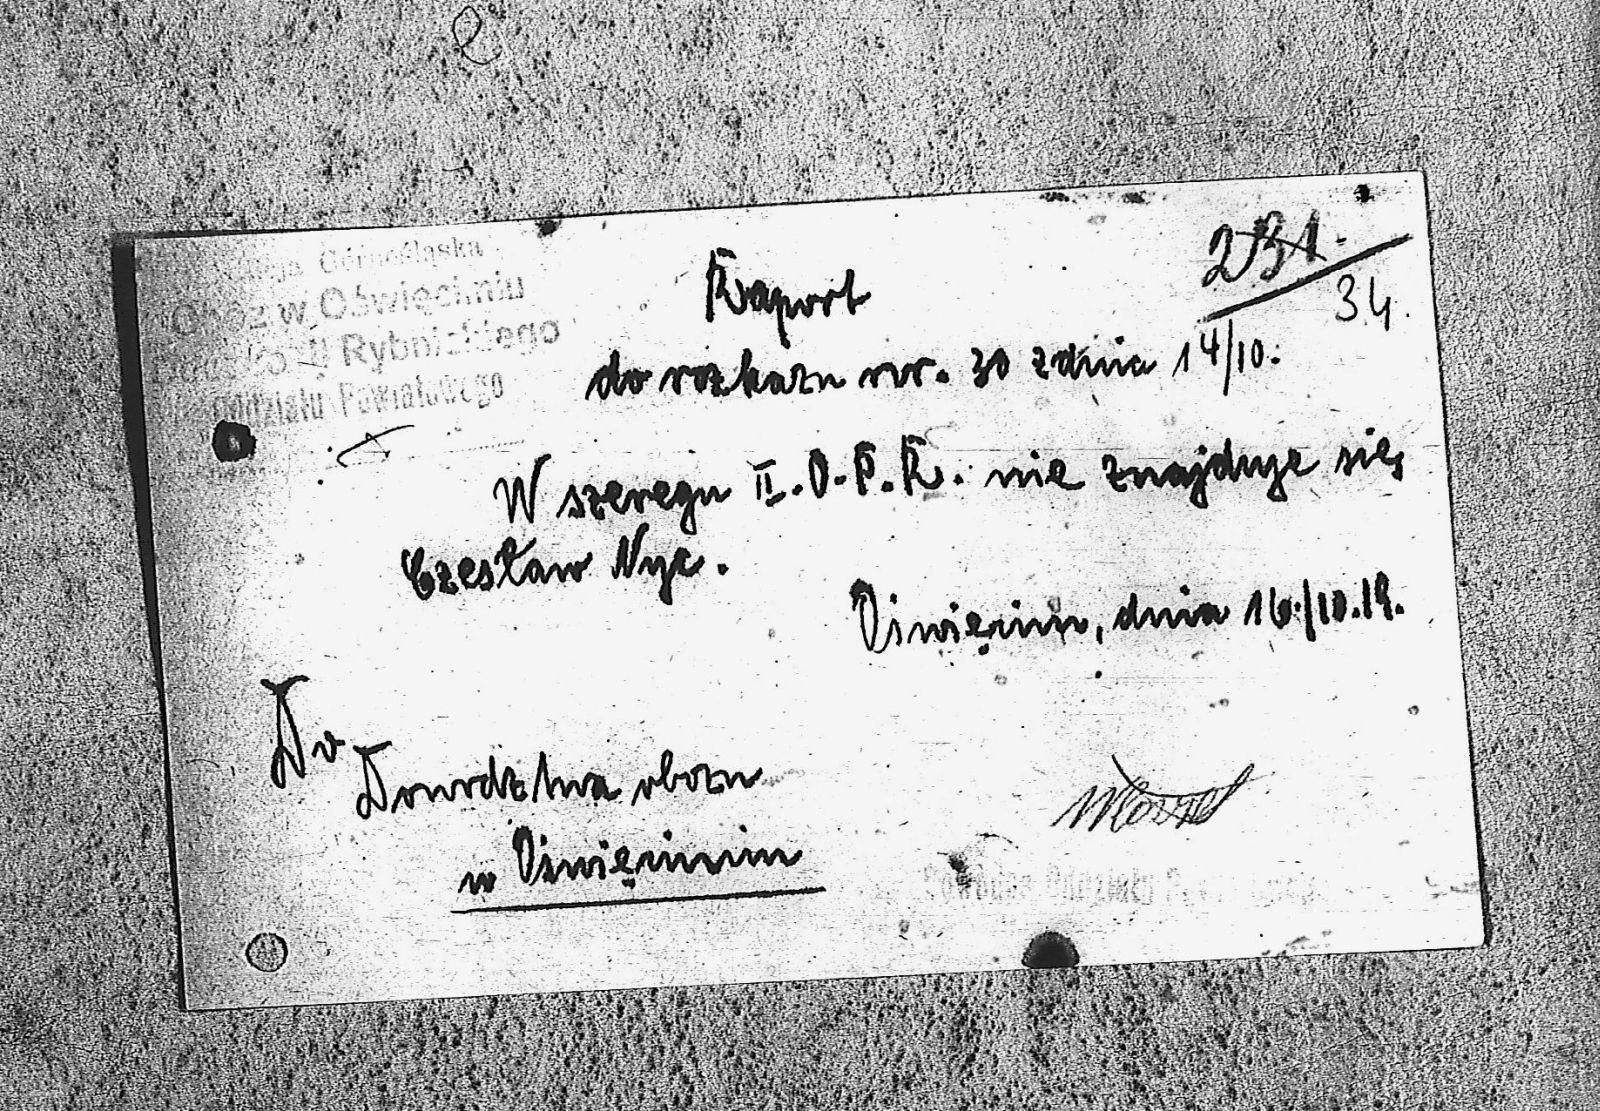 Górnośląska
Obóz w Oświęcimiu
Rybnickiego
Oddziału Powiatowego
231.
34.
Raport
do rozkazu nr. 30 z dnia 14/10.
W szeregu II. O. P. R. nie znajduje się
Czesław Nyc.
Oświęcim, dnia 16./10.19.
Do
Dowództwa obozu
w Oświęcimiu